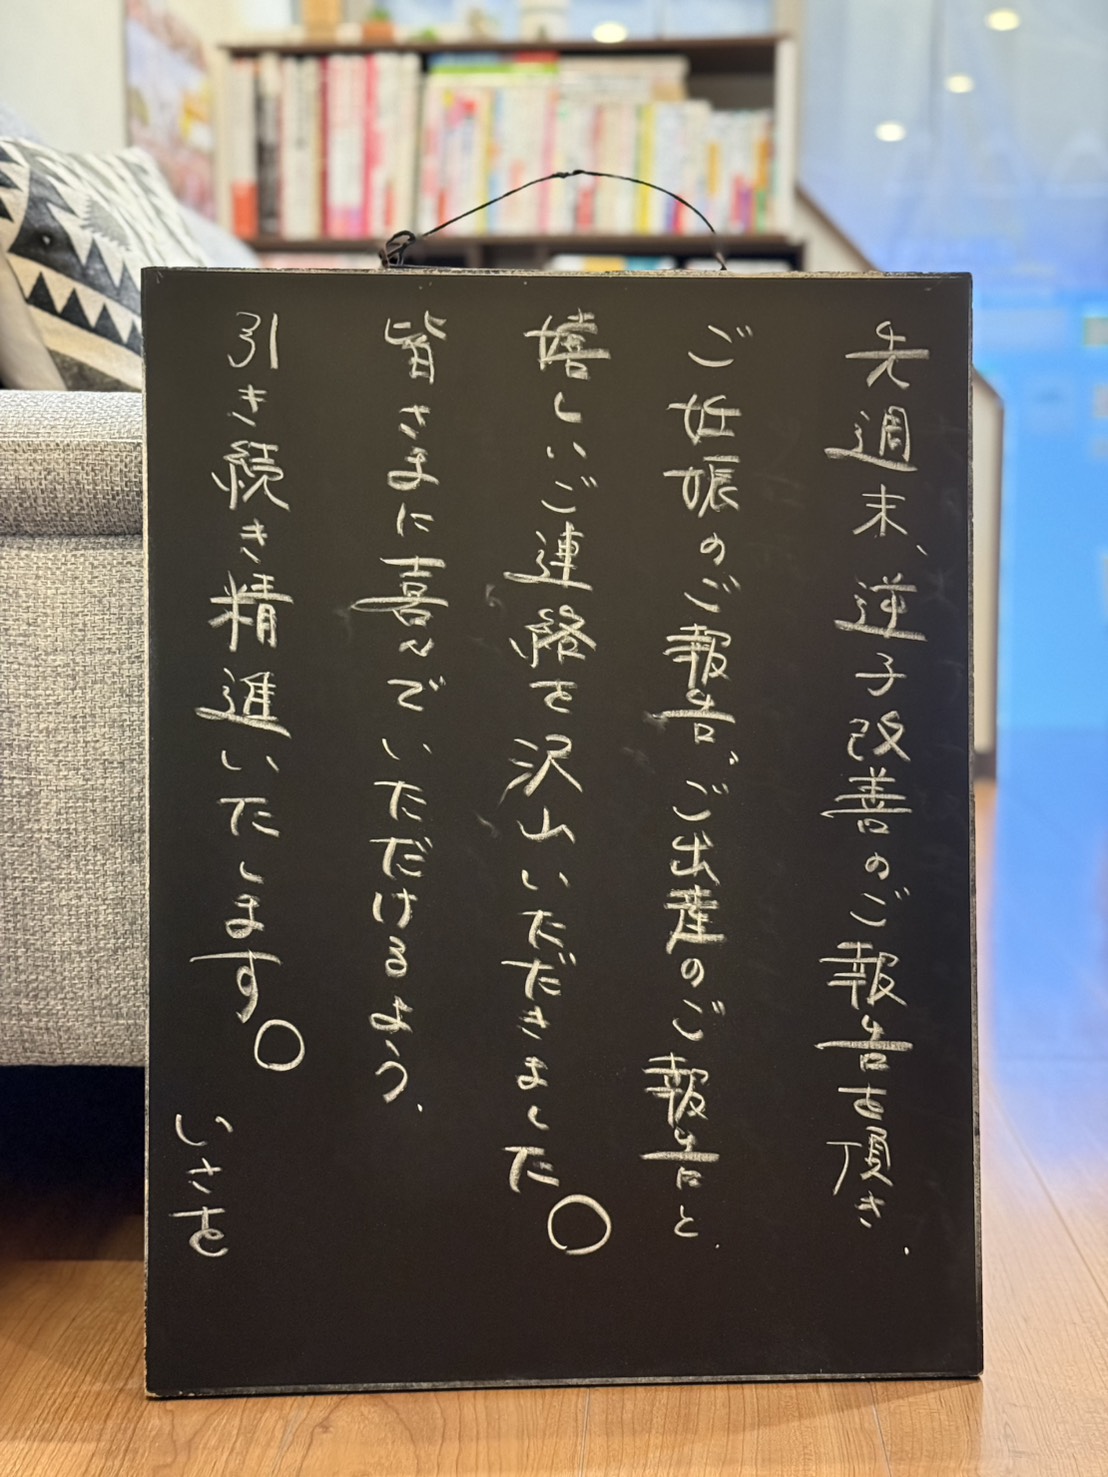 先週末、逆子改善のご報告を頂き、
ご妊娠のご報告、ご出産のご報告と、
嬉しいご連絡を沢山いただきました。
皆さまに喜んでいただけるよう、
引き続き精進いたします。
いさを